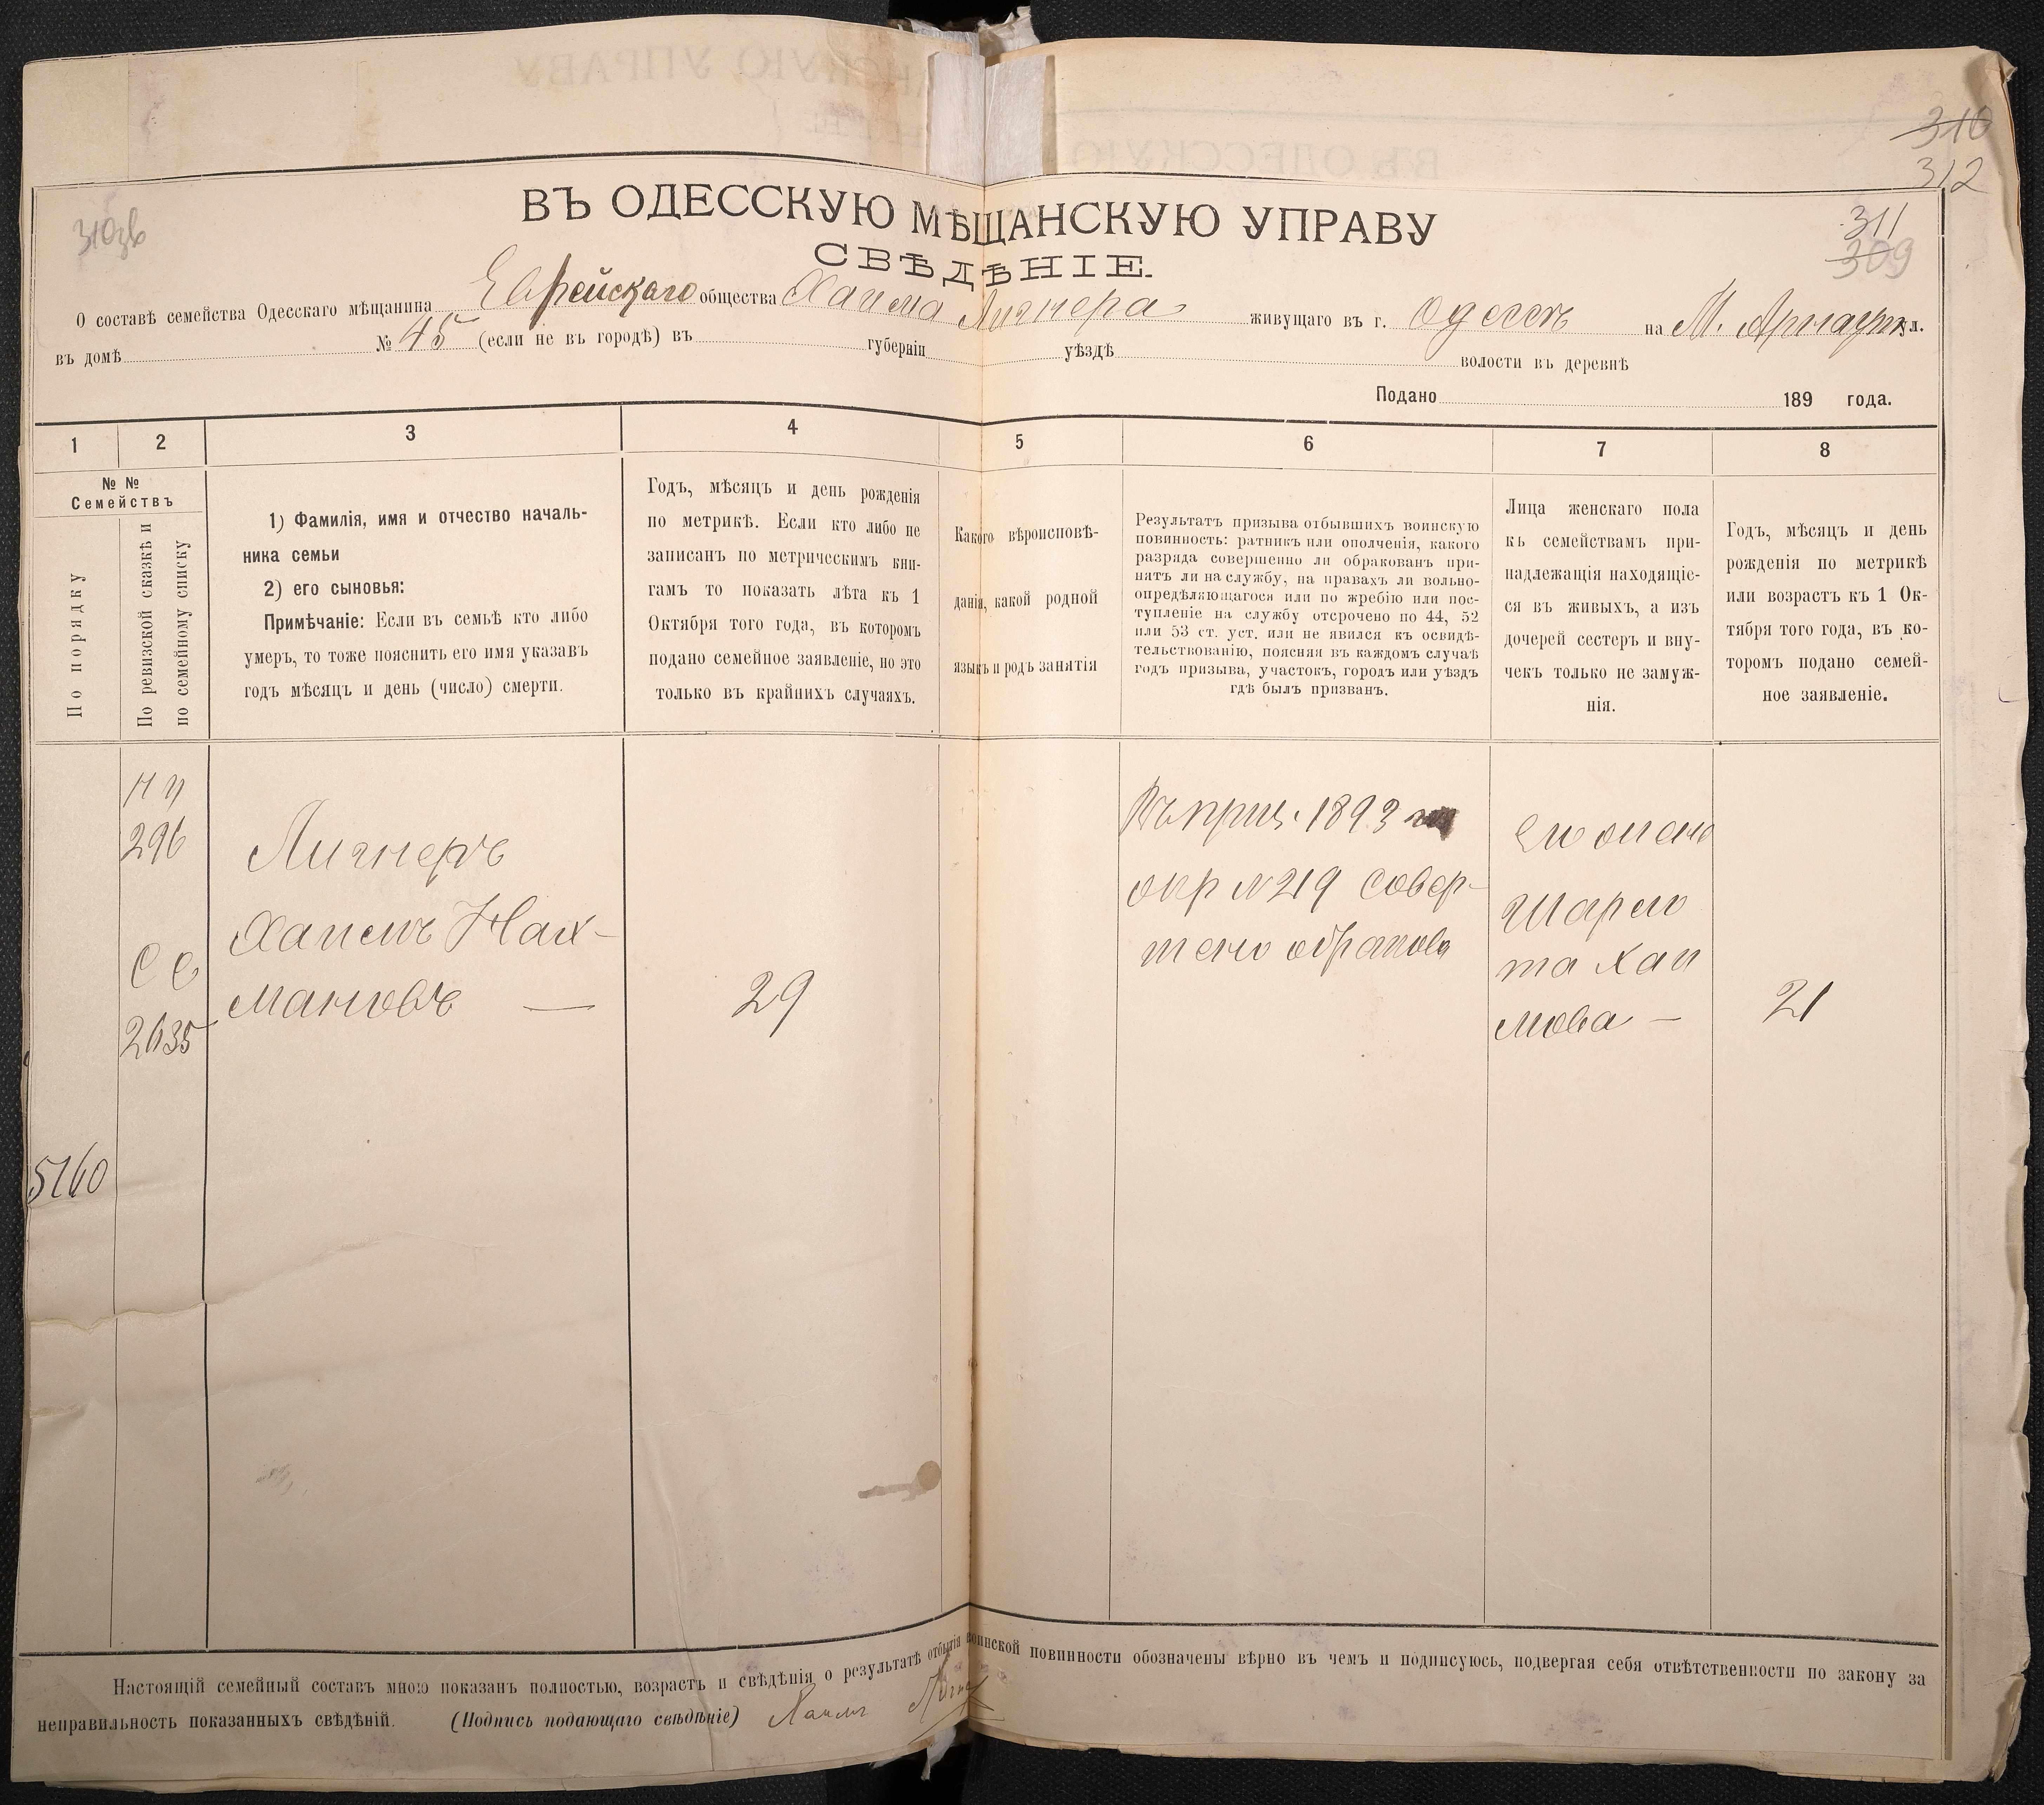 310
312
ВЪ ОДЕССКУЮ МѢЩАНСКУЮ УПРАВУ
311
309
310зв
СВѢДѢНІЕ.
О составѣ семейства Одесскаго мѣщанина Еврейскаго общества Хаима Лигнера живущаго въ г. Одессѣ на М. Арнаутк ул.
въ домѣ № 45 (если не въ городѣ) въ губерніи уѣздѣ волости въ деревнѣ
Подано 189 года.
1 2 3 4 5 6 7 8
№ №
Семействъ
По порядку
По ревизской сказкѣ и
по семейному списку
1) Фамилія, имя и отчество началь-
ника семьи
2) его сыновья:
Примѣчаніе: Если въ семьѣ кто либо
умеръ, то тоже пояснить его имя указавъ
годъ мѣсяцъ и день (число) смерти.
Годъ, мѣсяцъ и день рожденія
по метрикѣ. Если кто либо не
записанъ по метрическимъ кни-
гамъ то показать лѣта къ 1
Октября того года, въ которомъ
подано семейное заявленіе, но это
только въ крайнихъ случаяхъ.
Какого вѣроисповѣ-
данія, какой родной
языкъ и родъ занятія
Результатъ призыва отбывшихъ воинскую
повинность: ратникъ или ополченія, какого
разряда совершенно ли обракованъ при-
нятъ ли на службу, на правахъ ли вольно-
опредѣляющагося или по жребію или пос-
тупленіе на службу отсрочено по 44, 52
или 53 ст. уст. или не явился къ освидѣ-
тельствованію, поясняя въ каждомъ случаѣ
годъ призыва, участокъ, городъ или уѣздъ
гдѣ былъ призванъ.
Лица женскаго пола
къ семействамъ при-
надлежащія находящіе-
ся въ живыхъ, а изъ
дочерей сестеръ и вну-
чекъ только не замуж-
нія.
Годъ, мѣсяцъ и день
рожденія по метрикѣ
или возрастъ къ 1 Ок-
тября того года, въ ко-
торомъ подано семей-
ное заявленіе.
5160
296
2635
Лигнеръ
Хаимъ Нах-
мановъ —
29
Въ приз. 1893
жер №219 совер-
шено обракова
Его жена
Шарло
та Хаи
мова —
21
Настоящій семейный составъ мною показанъ полностью, возрастъ и свѣдѣнія о результатѣ отбытія воинской повинности обозначены вѣрно въ чемъ и подписуюсь, подвергая себя отвѣтственности по закону за
неправильность показанныхъ свѣдѣній. (Подпись подающаго свѣдѣніе) Хаимъ